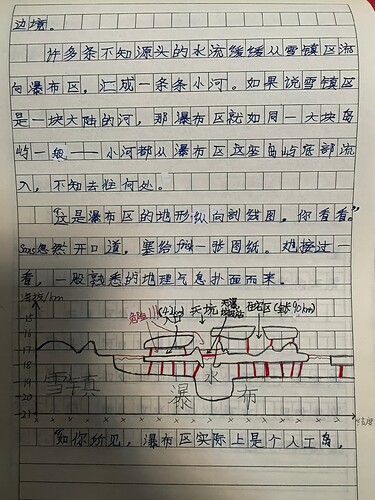 边境。
许多条不知源头的水流缓缓从雪镇区流
向瀑布区，汇成一条条小河。如果说雪镇区
是一块大陆的河，那瀑布区就如同一大块岛
屿一般——小河都从瀑布区这座岛屿底部流
入，不知去往何处。
“这是瀑布区的地形纵向剖线图。你看看。”
Sans忽然开口道，塞给frisk一张图纸。她接过一
看，一股熟悉的地理气息扑面而来。
海拔/km
危险!!!
入口
天坑
-15
-16
-17
-18
-19
-20
-21
雪镇
瀑
水
布
“如你所见，瀑布区实际上是个人工岛，